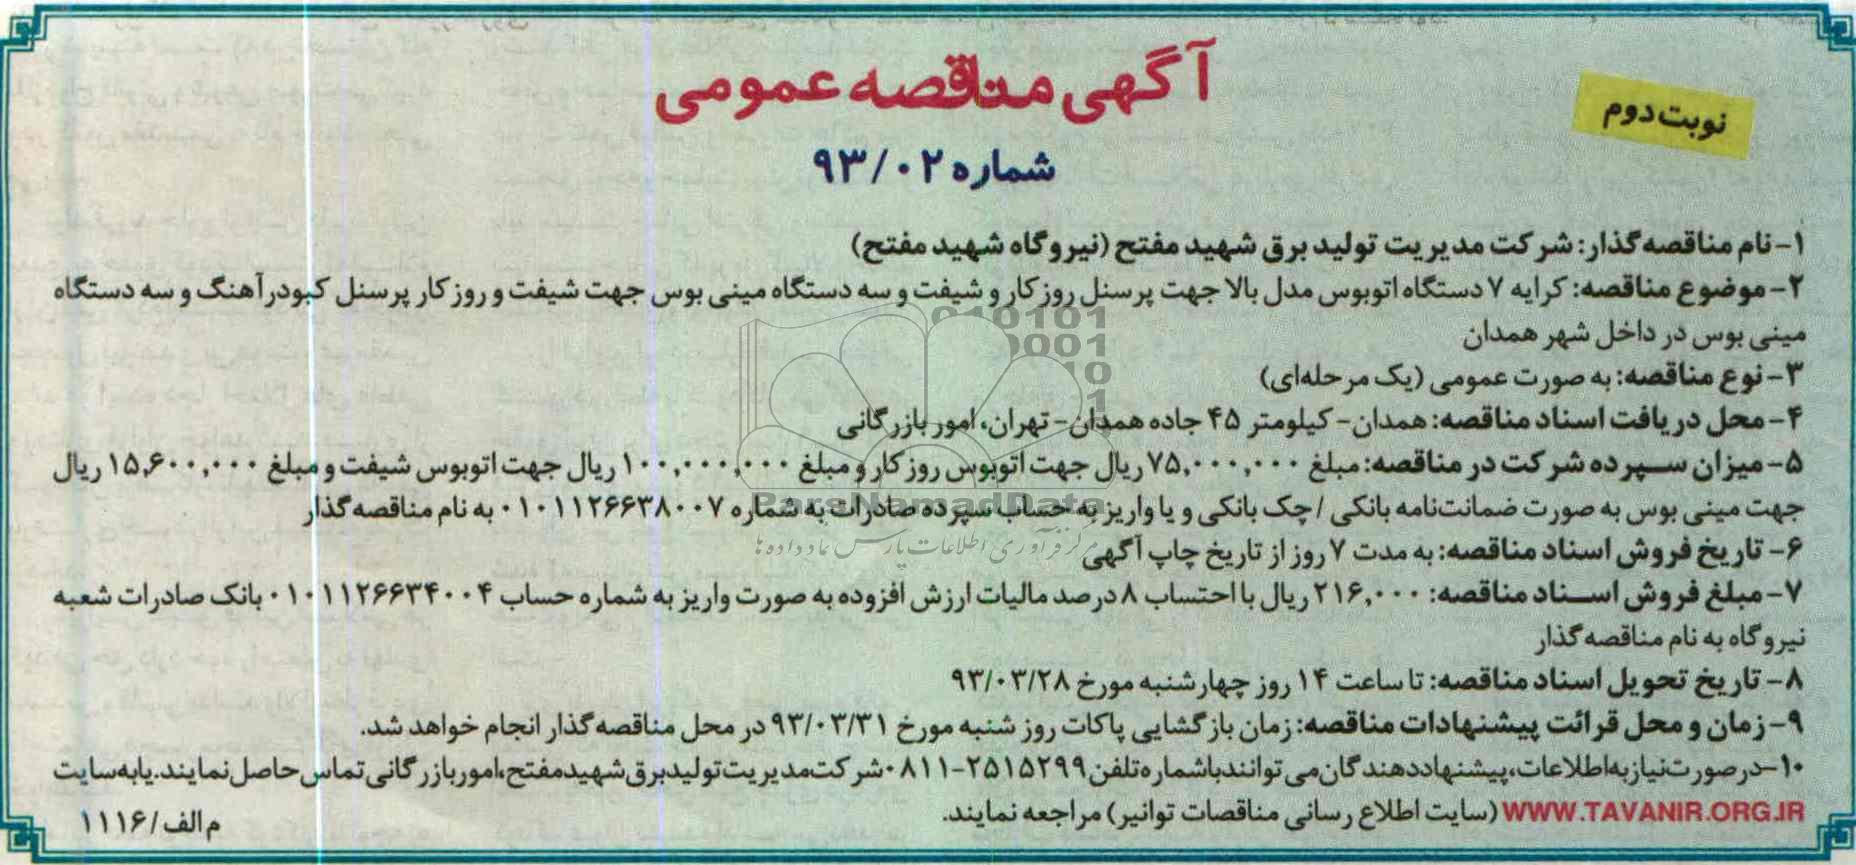 آگهی مناقصه عمومی
نوبت دوم
شماره ۹۳/۰۲
۱- نام مناقصه‌گذار: شرکت مدیریت تولید برق شهید مفتح (نیروگاه شهید مفتح)
۲- موضوع مناقصه: کرایه ۷ دستگاه اتوبوس مدل بالا جهت پرسنل روزکار و شیفت و سه دستگاه مینی بوس جهت شیفت و روزکار پرسنل کبودرآهنگ و سه دستگاه
مینی بوس در داخل شهر همدان
۳- نوع مناقصه: به صورت عمومی (یک مرحله‌ای)
۴- محل دریافت اسناد مناقصه: همدان- کیلومتر ۴۵ جاده همدان- تهران، امور بازرگانی
۵- میزان سپرده شرکت در مناقصه: مبلغ ۷۵,۰۰۰,۰۰۰ ریال جهت اتوبوس روزکار و مبلغ ۱۰۰,۰۰۰,۰۰۰ ریال جهت اتوبوس شیفت و مبلغ ۱۵,۶۰۰,۰۰۰ ریال
جهت مینی بوس به صورت ضمانت‌نامه بانکی / چک بانکی و یا واریز به حساب سپرده صادرات به شماره ۰۱۰۱۱۲۶۶۳۸۰۰۷ به نام مناقصه‌گذار
۶- تاریخ فروش اسناد مناقصه: به مدت ۷ روز از تاریخ چاپ آگهی
۷- مبلغ فروش اسناد مناقصه: ۲۱۶,۰۰۰ ریال با احتساب ۸ درصد مالیات ارزش افزوده به صورت واریز به شماره حساب ۰۱۰۱۱۲۶۶۳۴۰۰۴ بانک صادرات شعبه
نیروگاه به نام مناقصه‌گذار
۸- تاریخ تحویل اسناد مناقصه: تا ساعت ۱۴ روز چهارشنبه مورخ ۹۳/۰۳/۲۸
۹- زمان و محل قرائت پیشنهادات مناقصه: زمان بازگشایی پاکات روز شنبه مورخ ۹۳/۰۳/۳۱ در محل مناقصه‌گذار انجام خواهد شد.
۱۰- در صورت نیاز به اطلاعات، پیشنهاددهندگان می توانند با شماره تلفن ۲۵۱۵۲۹۹-۰۸۱۱ شرکت مدیریت تولید برق شهید مفتح، امور بازرگانی تماس حاصل نمایند. یا به سایت
WWW.TAVANIR.ORG.IR (سایت اطلاع رسانی مناقصات توانیر) مراجعه نمایند.
م الف/۱۱۱۶
ParsNamadData
مرکز فرآوری اطلاعات پارس نماد داده ها